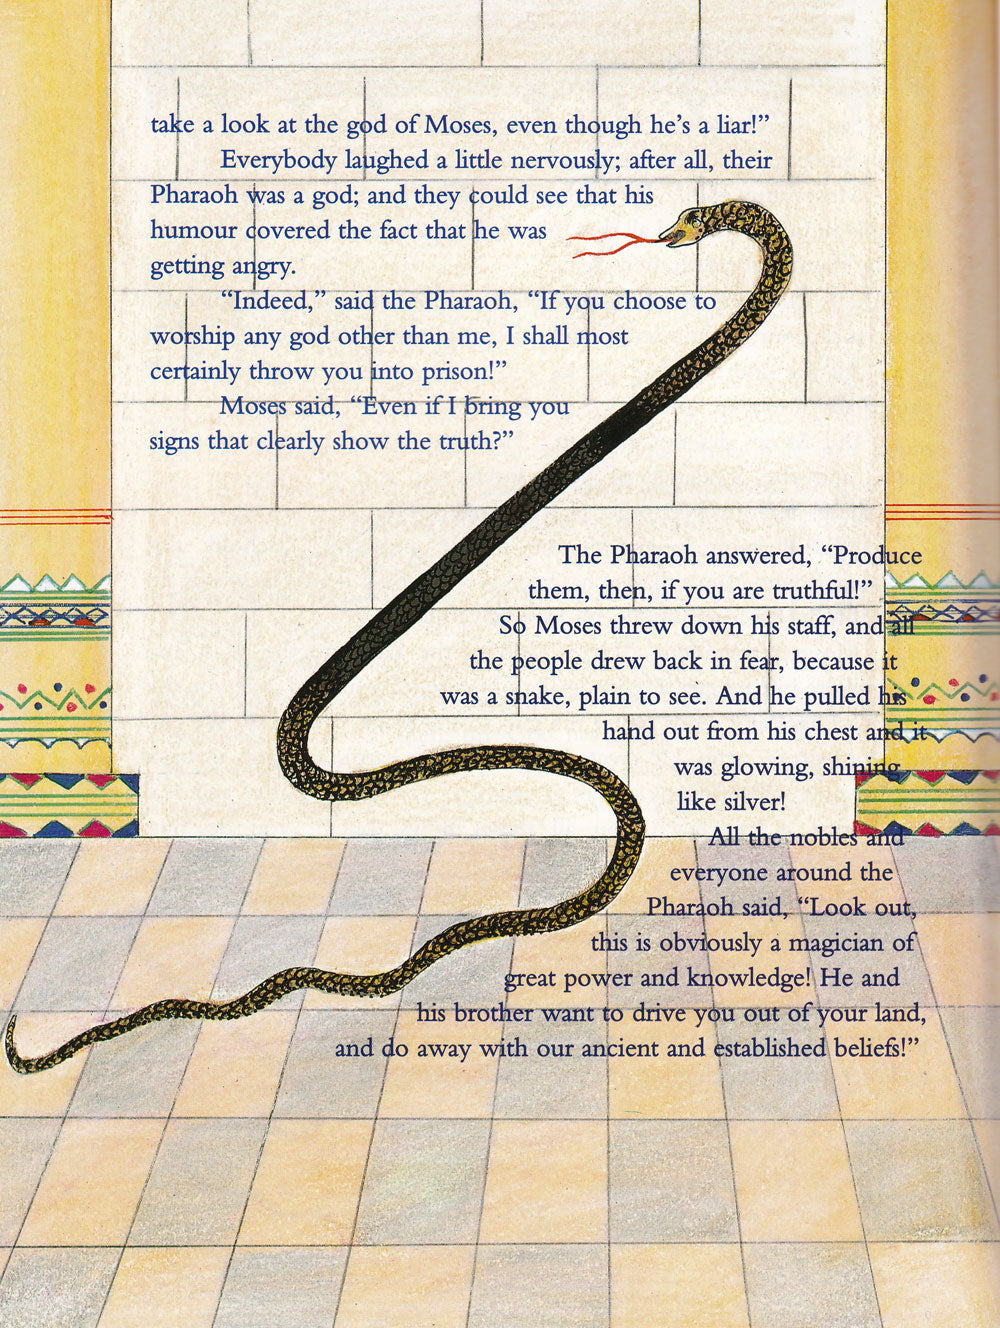 take a look at the god of Moses, even though he’s a liar!”
Everybody laughed a little nervously; after all, their
Pharaoh was a god; and they could see that his
humour covered the fact that he was
getting angry.
“Indeed,” said the Pharaoh, “If you choose to
worship any god other than me, I shall most
certainly throw you into prison!”
Moses said, “Even if I bring you
signs that clearly show the truth?”
The Pharaoh answered, “Produce
them, then, if you are truthful!”
So Moses threw down his staff, and all
the people drew back in fear, because it
was a snake, plain to see. And he pulled his
hand out from his chest and it
was glowing, shining
like silver!
All the nobles and
everyone around the
Pharaoh said, “Look out,
this is obviously a magician of
great power and knowledge! He and
his brother want to drive you out of your land,
and do away with our ancient and established beliefs!”